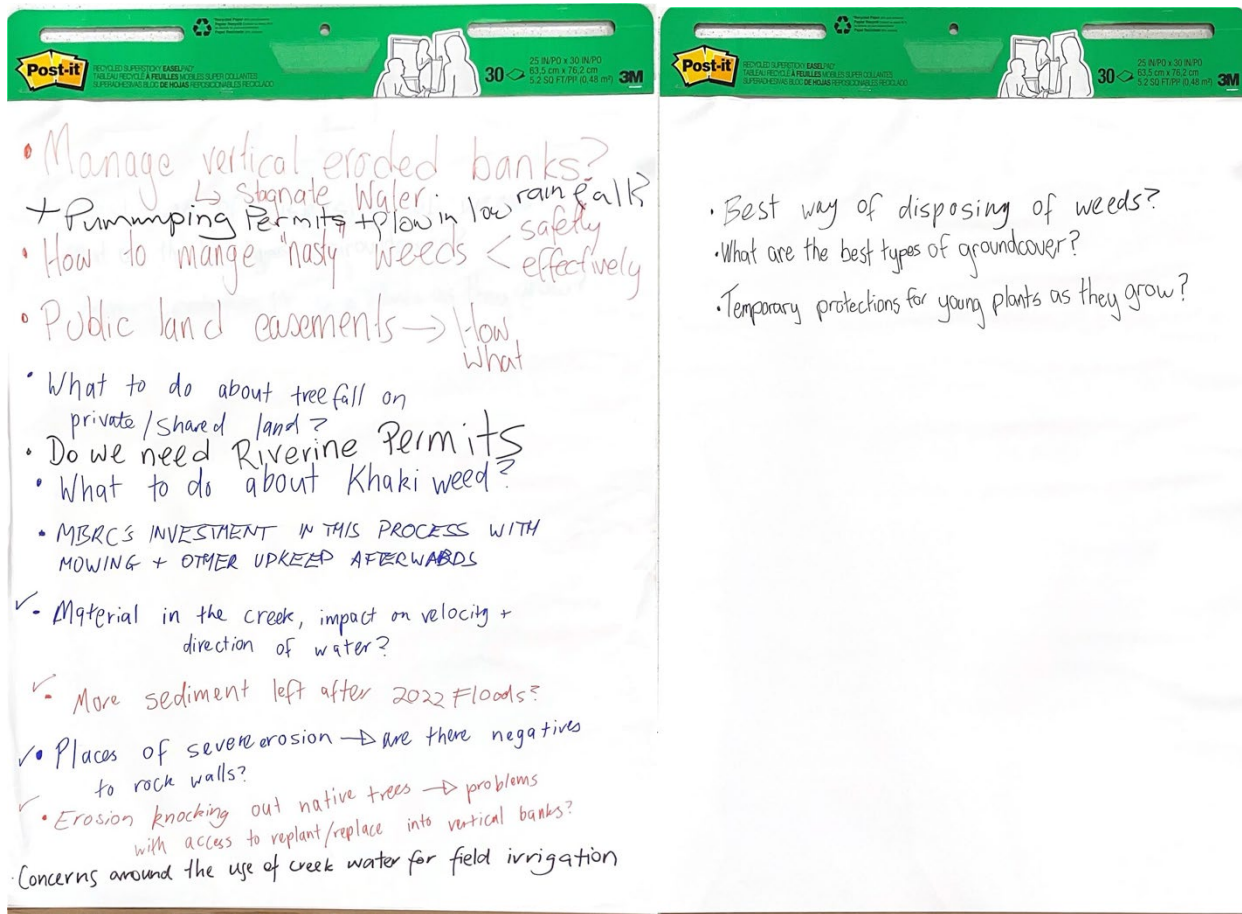 Post-it
RECYCLED SUPERSTICKY EASEL PAD
TABLEAU RECYCLÉ À FEUILLES MOBILES SUPER COLLANTES
SUPERADHESIVAS BLOC DE HOJAS REPOSICIONABLES RECICLADO
30
25 IN/PO x 30 IN/PO
63,5 cm x 76,2 cm
5.2 SQ FT/PI² (0,48 m²)
3M
• Manage vertical eroded banks?
↳ Stagnate Water
+ Pumumping Permits + flow in low rain fall?
• How to mange "nasty" weeds < safely
effectively
• Public land easements → How
What
• What to do about tree fall on
private/shared land?
• Do we need Riverine Permits
• What to do about Khaki weed?
• MBRC'S INVESTMENT IN THIS PROCESS WITH
MOWING + OTHER UPKEEP AFTERWARDS
✓- Material in the creek, impact on velocity +
direction of water?
✓- More sediment left after 2022 Floods?
✓• Places of severe erosion → are there negatives
to rock walls?
✓• Erosion knocking out native trees → problems
with access to replant/replace into vertical banks?
· Concerns around the use of creek water for field irrigation
Post-it
RECYCLED SUPERSTICKY EASEL PAD
TABLEAU RECYCLÉ À FEUILLES MOBILES SUPER COLLANTES
SUPERADHESIVAS BLOC DE HOJAS REPOSICIONABLES RECICLADO
30
25 IN/PO x 30 IN/PO
63,5 cm x 76,2 cm
5.2 SQ FT/PI² (0,48 m²)
3M
· Best way of disposing of weeds?
· What are the best types of groundcover?
· Temporary protections for young plants as they grow?